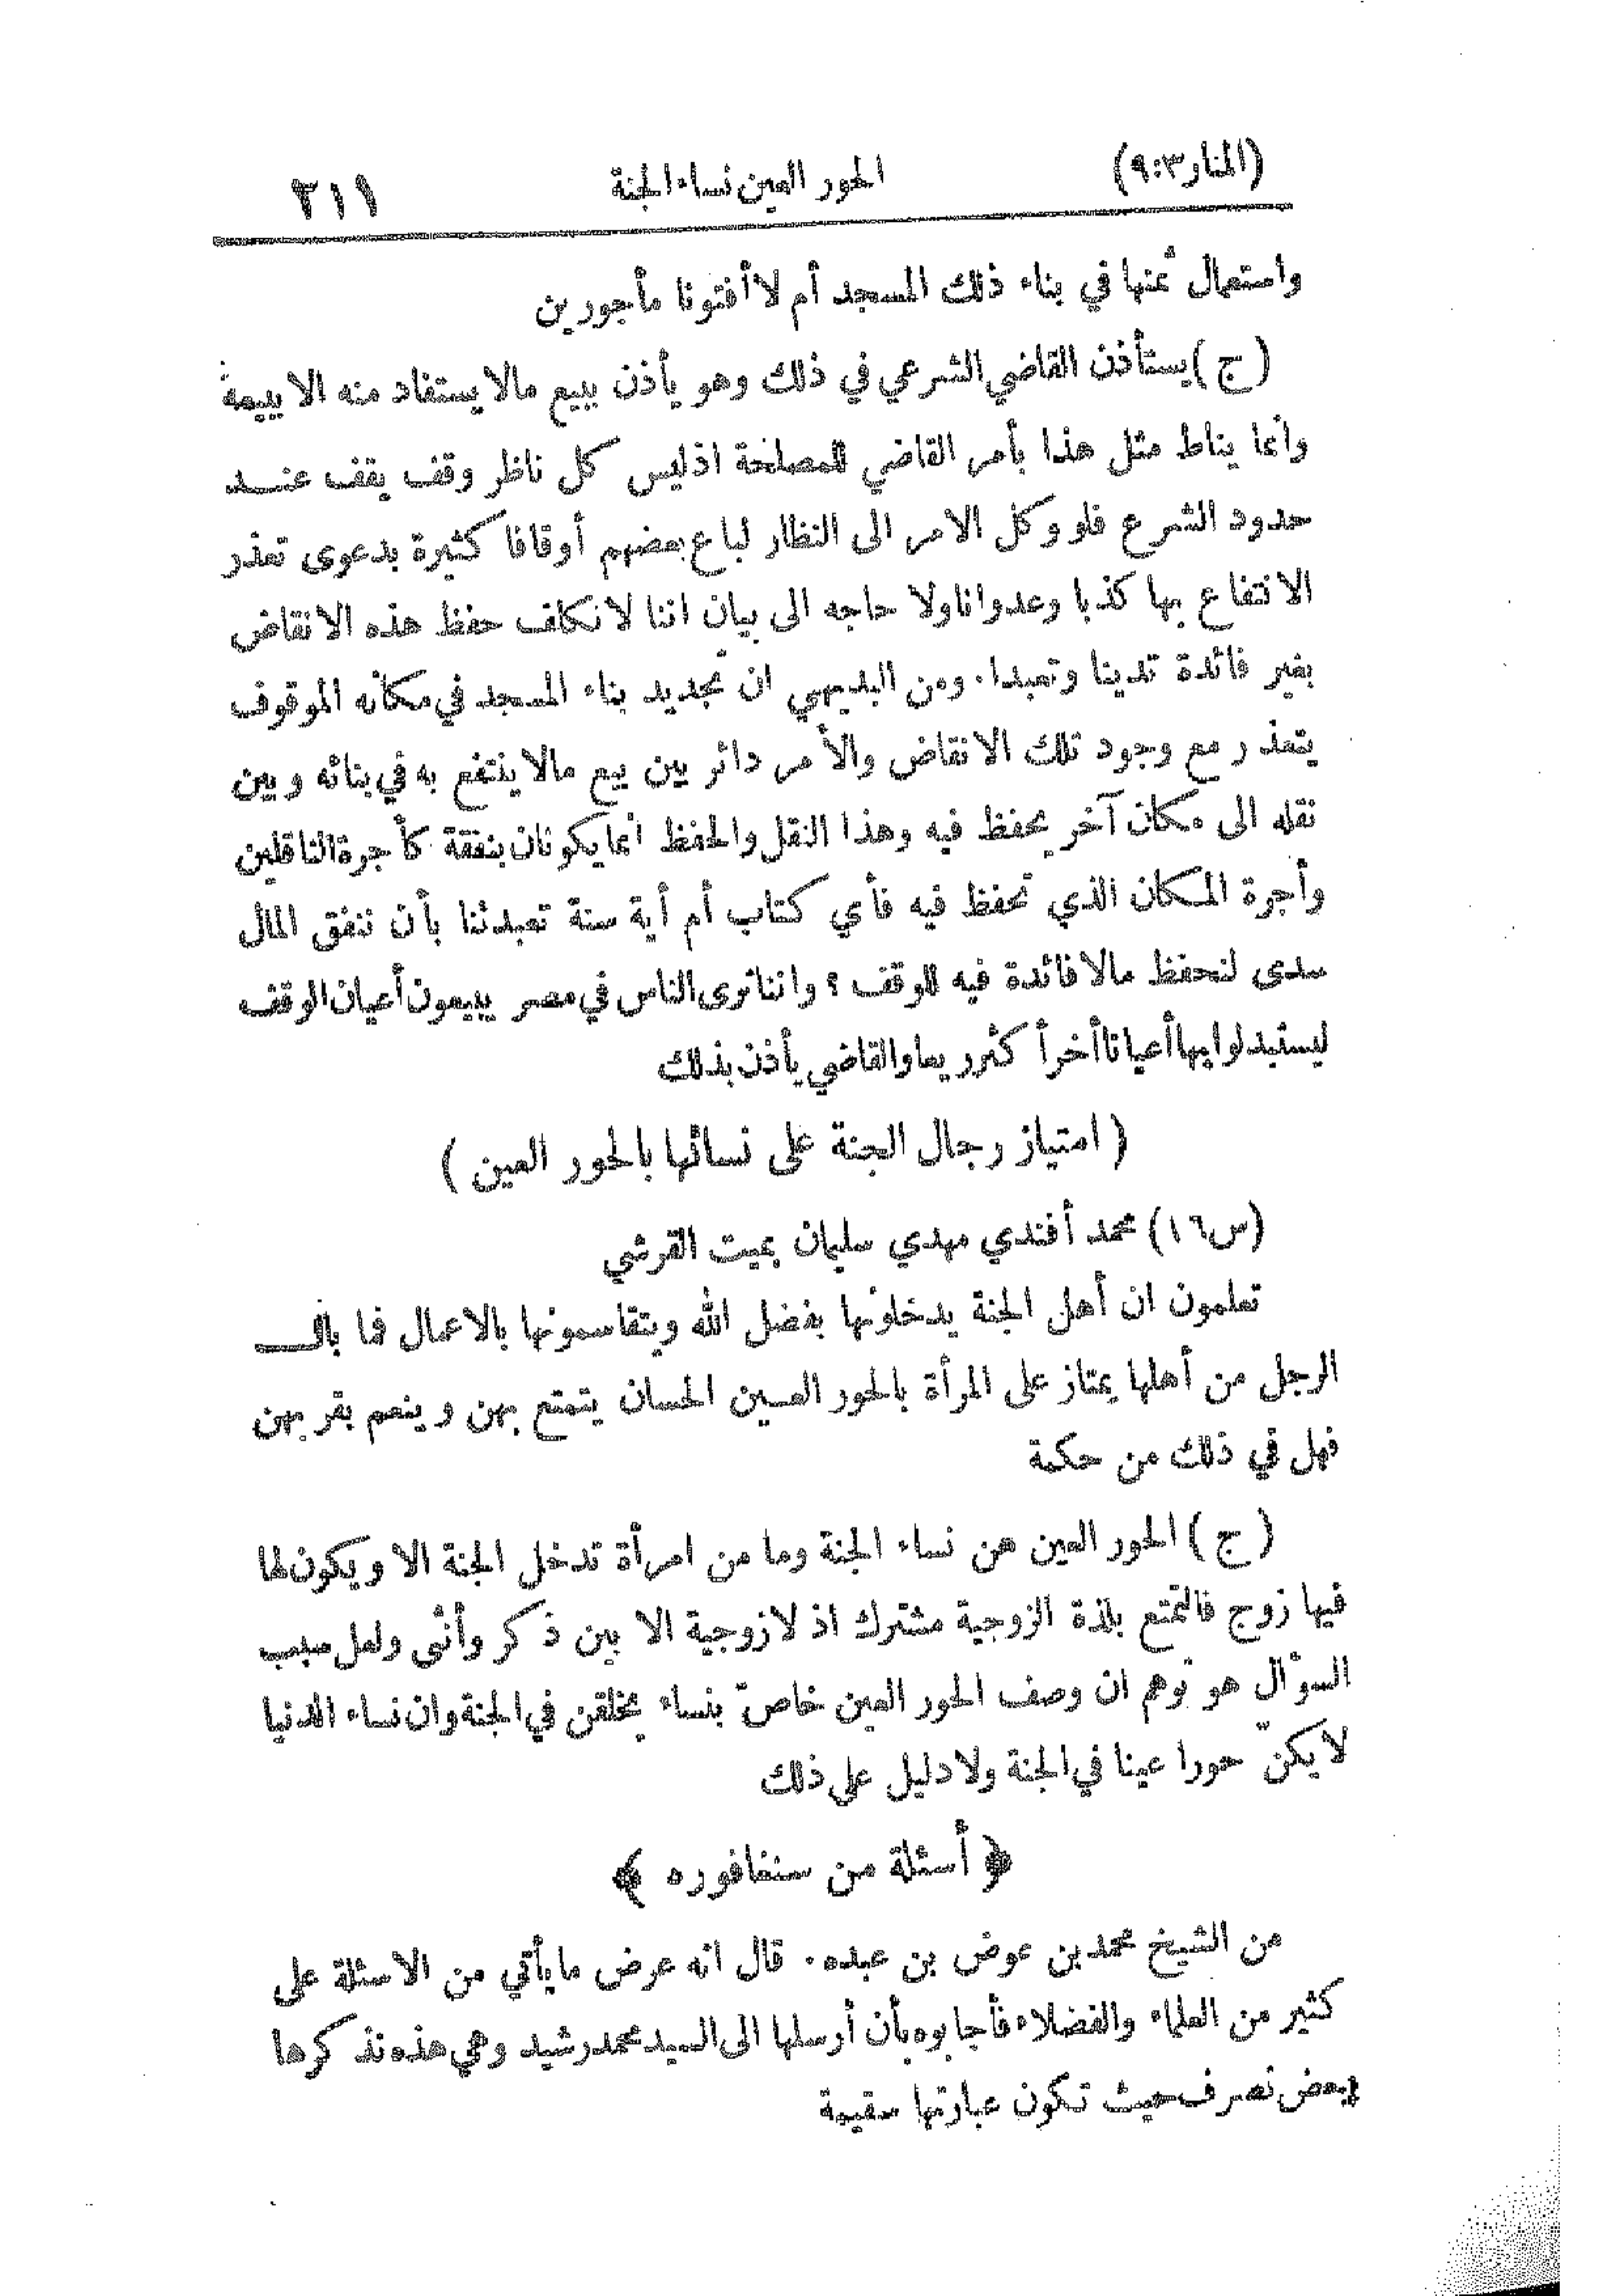 (المنار ٣: ٩) الحور العين نساء الجنة ٢١١
واستعمال ثمنها في بناء ذلك المسجد أم لا أفتونا مأجورين
(ج) يستأذن القاضي الشرعي في ذلك وهو يأذن ببيع مالا يستفاد منه الا ببيعه
وانما يناط مثل هذا بأمر القاضي للمصلحة اذ ليس كل ناظر وقف يقف عنــد
حدود الشرع فلو وكل الامر الى النظار لباع بعضهم أوقافا كثيرة بدعوى تعذر
الانتفاع بها كذبا وعدوانا ولا حاجه الى بيان اننا لا نكلف حفظ هذه الانقاض
بغير فائدة تدينا وتعبدا. ومن البديهي ان تجديد بناء المسجد في مكانه الموقوف
يتعذر مع وجود تلك الانقاض والأمر دائر بين بيع مالا ينتفع به في بنائه وبين
نقله الى مكان آخر يحفظ فيه وهذا النقل والحفظ انما يكونان بنفقة كأجرة الناقلين
وأجرة المكان الذي تحفظ فيه فأي كتاب أم أية سنة تعبدتنا بأن ننفق المال
سدى لنحفظ مالا فائدة فيه للوقف؟ واننا نرى الناس في مصر يبيعون أعيان الوقف
ليستبدلوا بها أعيانا أخرأ كثر ريعا والقاضي يأذن بذلك
( امتياز رجال الجنة على نسائها بالحور العين )
(س١٦) محمد أفندي مهدي سليمان بميت القرشي
تعلمون ان أهل الجنة يدخلونها بفضل الله ويتقاسمونها بالاعمال فما بالــ
الرجل من أهلها يمتاز على المرأة بالحور العــين الحسان يتمتع بهن وينعم بقربهن
فهل في ذلك من حكمة
(ج) الحور العين هن نساء الجنة وما من امرأة تدخل الجنة الا ويكون لها
فيها زوج فالتمتع بلذة الزوجية مشترك اذ لا زوجية الا بين ذكر وأنثى ولعل سبب
السؤال هو توهم ان وصف الحور العين خاصّ بنساء يخلقن في الجنة وان نساء الدنيا
لا يكنّ حورا عينا في الجنة ولا دليل على ذلك
﴿ أسئلة من سنغافوره ﴾
من الشيخ محمد بن عوض بن عبده. قال انه عرض ما يأتي من الاسئلة على
كثير من العلماء والفضلاء فأجابوه بأن أرسلها الى السيد محمد رشيد وهي هذه نذكرها
ببعض تصرف حيث تكون عبارتها سقيمة